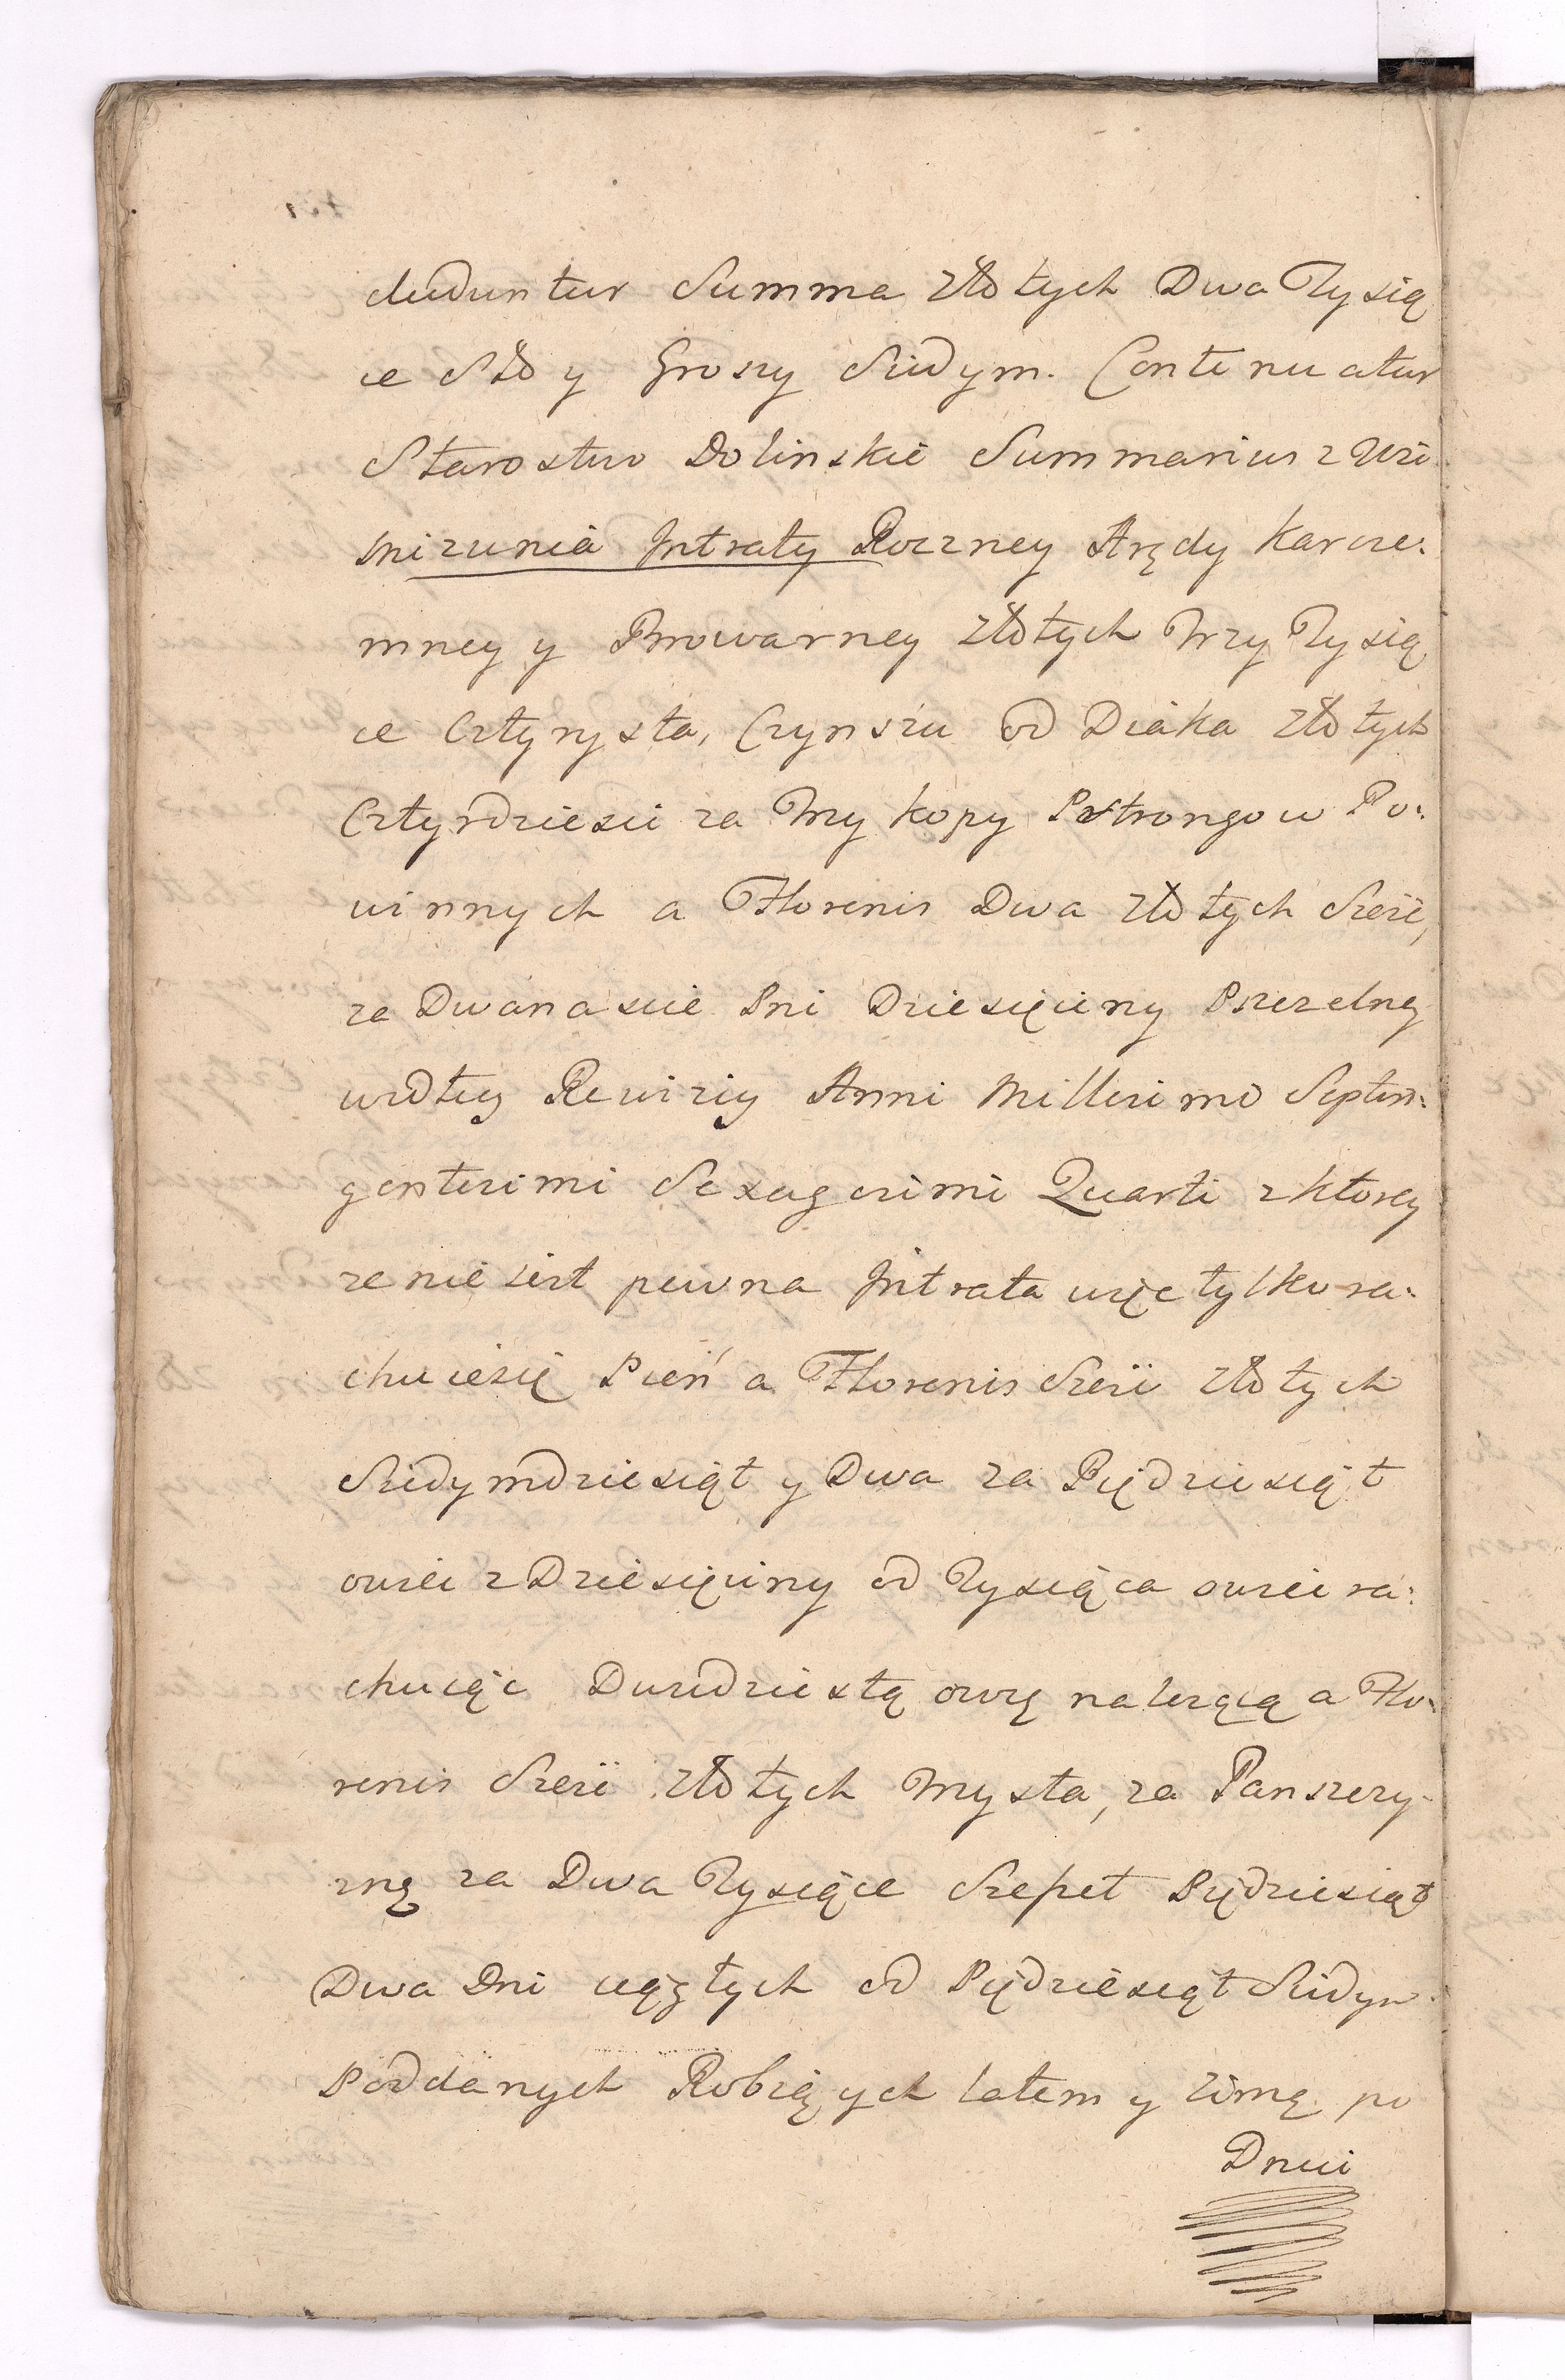 cluduntur Summa Złotych Dwa Tysią
ce Sto y Groszy Siedym. Continuatur
Starostwo Dolinskie Summarius z Wsi
Mizunia Intraty Roczney Arędy Karcze:
mney y Browarney Złotych Trzy Tysią
ce Cztyrysta, Czynszu od Diaka Złotych
Cztyrdziesci za Trzy kopy Pstrongow Po:
winnych a Florenis Dwa Złotych Szesć,
za Dwanascie Pni Dziesięciny Pszczelney
według Rewiziy Anni Millesimo Septin:
gentesimi Sexagesimi Quarti z ktorey
ze nie iest pewna Intrata więc tylko ra:
chuiesię Pień a Florenis Szesć Złotych
Siedymdziesiąt y Dwa za Piędziesiąt
owiec z Dziesięciny od Tysiąca owiec ra:
chuiąc Dwudziestą owcę należącą a Flo:
renis Szesć Złotych Trzysta, za Panszczy-
znę za Dwa Tysiące Szescet Pięдziesiąt
Dwa Dni ciągłych od Pięдziesiąt Siedym
Poddanych Robiących latem y zimą po
Dniu